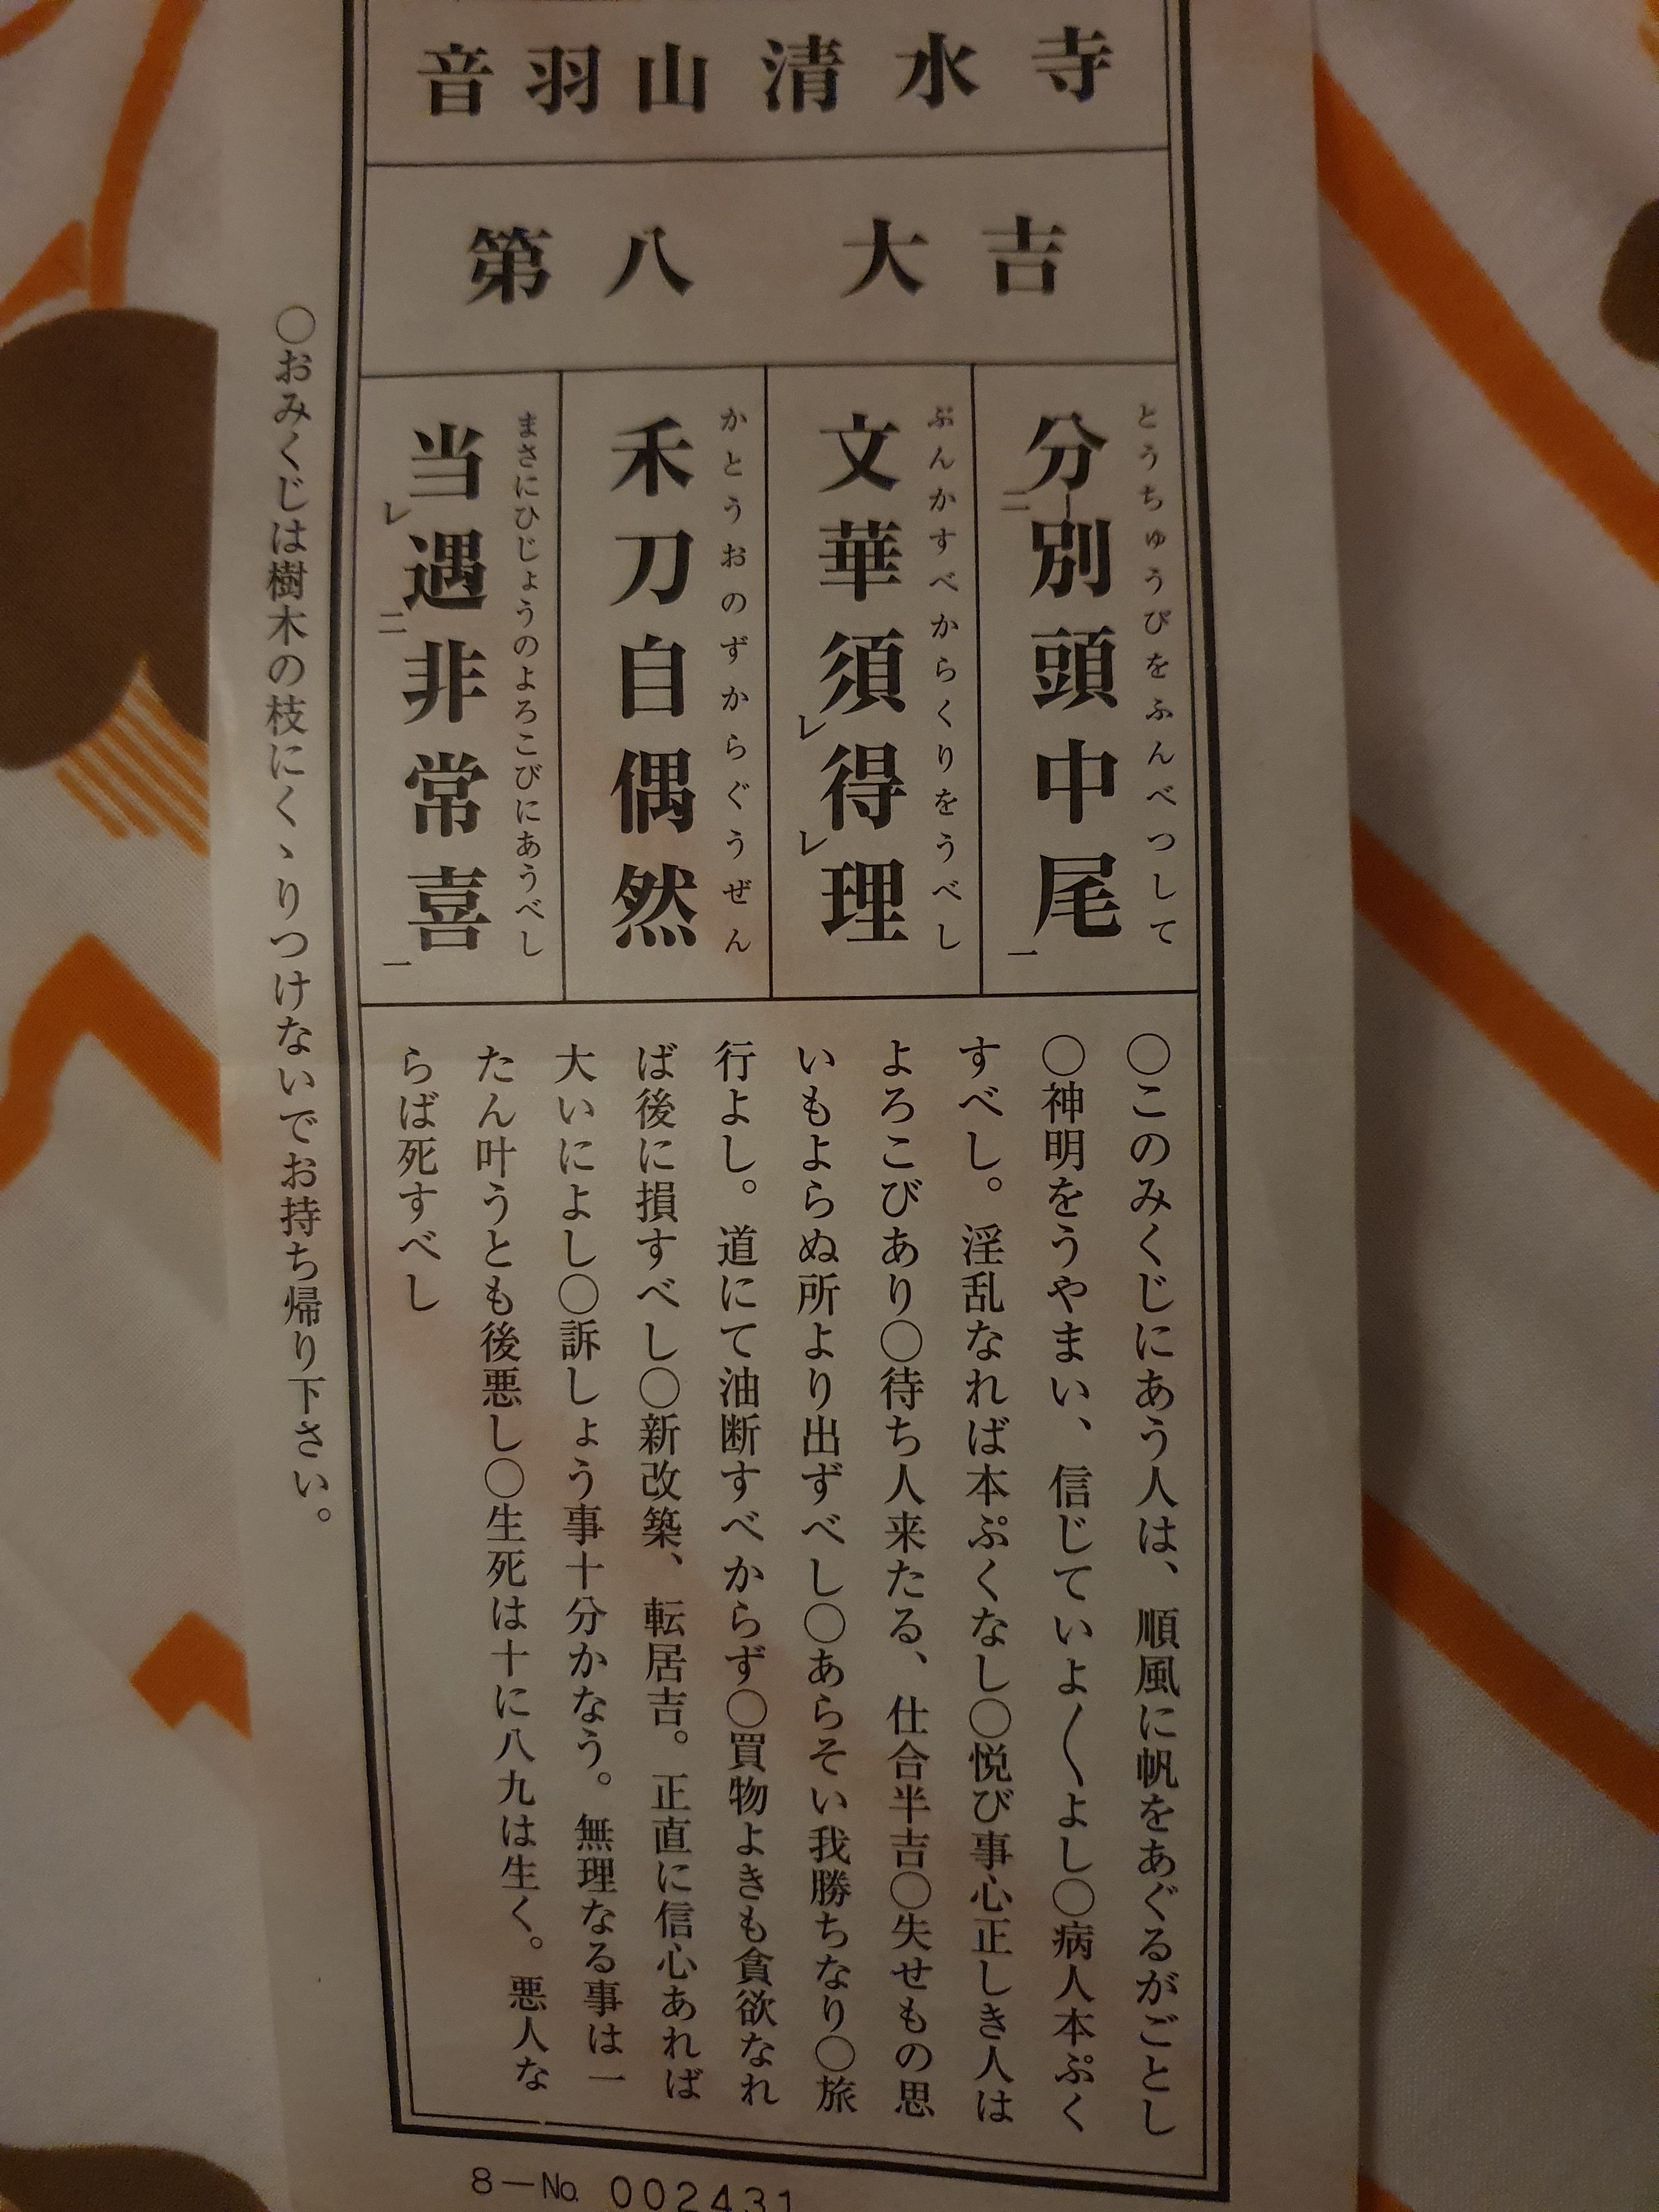 音羽山清水寺
第八 大吉
とうちゅうびをふんべつして
分別頭中尾
ぶんかすべからくりをうべし
文華須得理
かとうおのずからぐうぜん
禾刀自偶然
まさにひじょうのよろこびにあうべし
当遇非常喜
〇このみくじにあう人は、順風に帆をあぐるがごとし
〇神明をうやまい、信じていよ〱よし〇病人本ぷく
すべし。淫乱なれば本ぷくなし〇悦び事心正しき人は
よろこびあり〇待ち人来たる、仕合半吉〇失せもの思
いもよらぬ所より出ずべし〇あらそい我勝ちなり〇旅
行よし。道にて油断すべからず〇買物よきも貪欲なれ
ば後に損すべし〇新改築、転居吉。正直に信心あれば
大いによし〇訴しょう事十分かなう。無理なる事は一
たん叶うとも後悪し〇生死は十に八九は生く。悪人な
らば死すべし
〇おみくじは樹木の枝にくゝりつけないでお持ち帰り下さい。
8－№ 002431